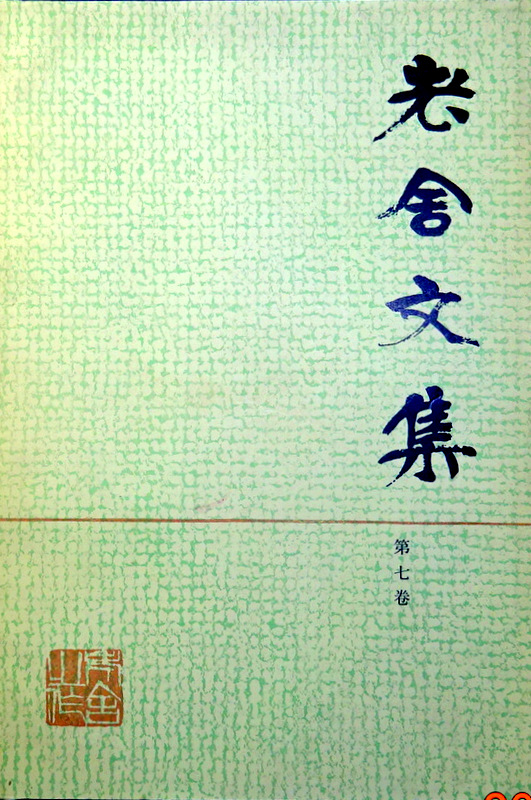 老舍文集
第七卷